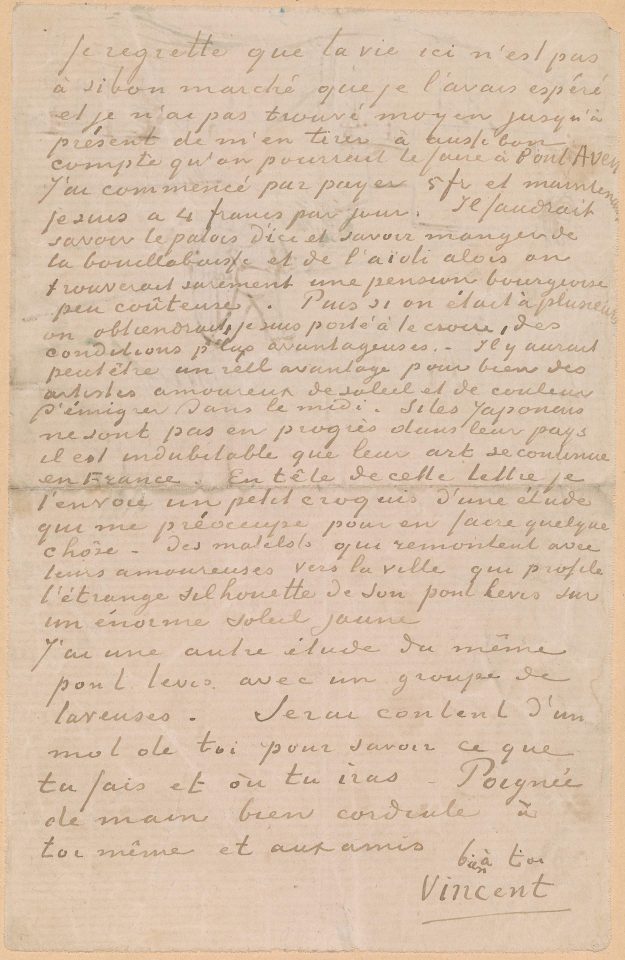 Je regrette que la vie ici n'est pas
à si bon marché que je l'avais espéré
et je n'ai pas trouvé moyen jusqu'à
présent de m'en tirer à aussi bon
compte qu'on pourrait le faire à Pont Aven
J'ai commencé par payer 5 fr et maintenant
je suis à 4 francs par jour. Il faudrait
savoir le patois d'ici et savoir manger de
la bouillabaisse et de l'aïoli alors on
trouverait surement une pension bourgeoise
peu coûteuse. Puis si on était à plusieurs
on obtiendrait, je suis porté à le croire, des
conditions plus avantageuses. - Il y aurait
peutêtre un réel avantage pour bien des
artistes amoureux de soleil et de couleur
d'émigrer dans le midi. Si les Japonais
ne sont pas en progrès dans leur pays
il est indubitable que leur art se continue
en France. En tête de cette lettre je
t'envoie un petit croquis d'une étude
qui me préoccupe pour en faire quelque
chôse - des matelots qui remontent avec
leurs amoureuses vers la ville qui profile
l'étrange silhouette de son pont levis sur
un énorme soleil jaune
J'ai une autre étude du même
pont levis avec un groupe de
laveuses. Serai content d'un
mot de toi pour savoir ce que
tu fais et où tu iras - Poignée
de main bien cordiale à
toi même et aux amis
bien à toi
Vincent